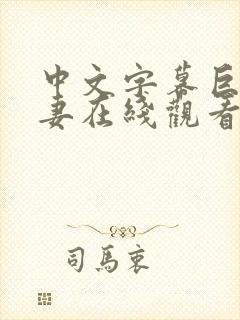 中文字幕巨
妻在綫觀看
司馬衷